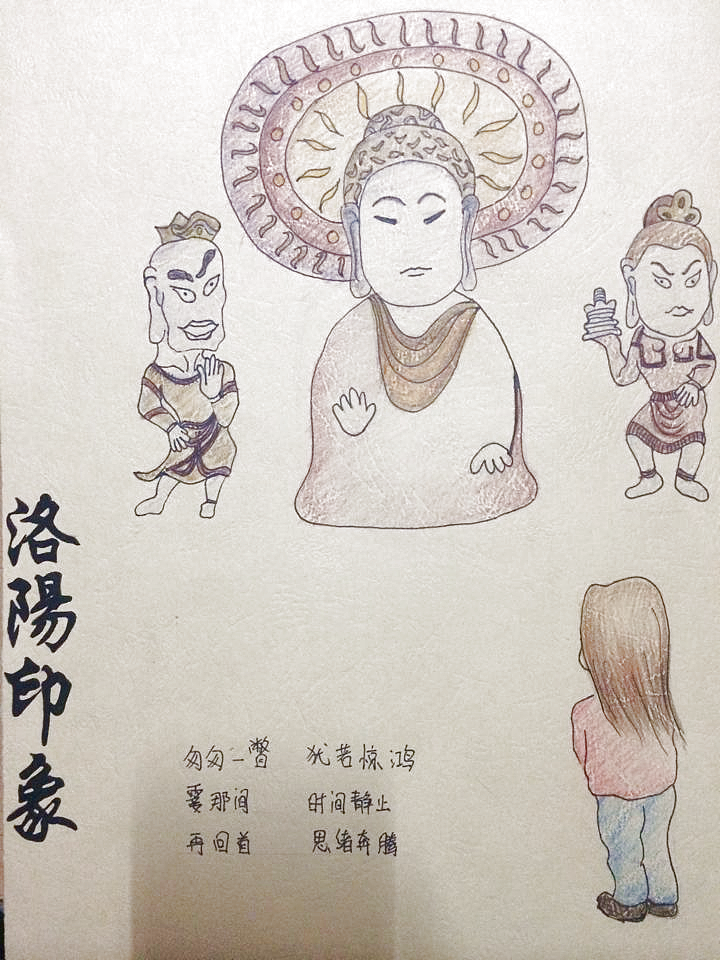 洛陽印象
匆匆一瞥 犹若惊鸿
霎那间 时间静止
再回首 思绪奔腾